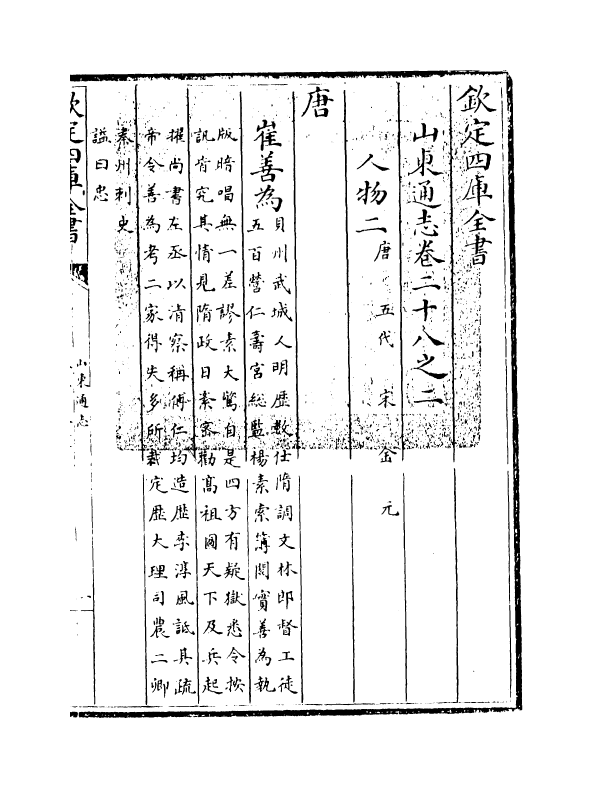 欽定四庫全書
山東通志卷二十八之二
人物二 唐 五代 宋 金 元
唐
崔善為 貝州武城人明歷數仕隋調文林郎督工徒
五百營仁壽宮総監楊素索簿閲實善為執
版暗唱無一差謬素大驚自是四方有疑獄悉令按
訊皆究其情見隋政日紊密勸髙祖圖天下及兵起
擢尚書左丞以清察稱傅仁均造歴李淳風詆其疏
帝令善為考二家得失多所裁定歴大理司農二卿
秦州刺史
諡曰忠
欽定四庫全書
山東通志
一